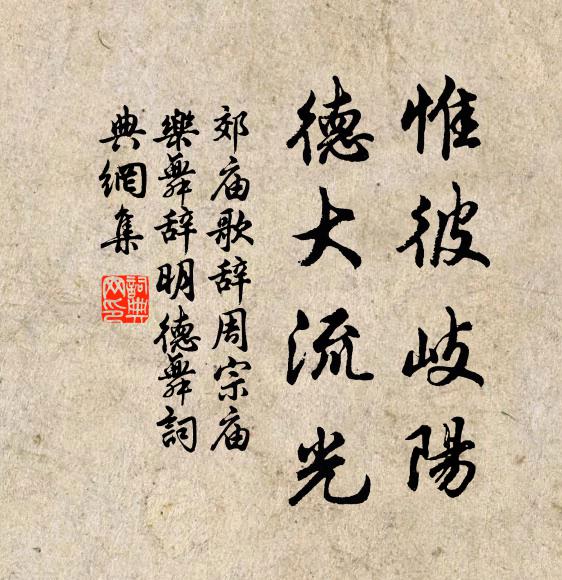 惟彼岐陽
德大流光
郊庙歌辞周宗庙
樂舞辞明德舞詞
典網集
詞典
网印